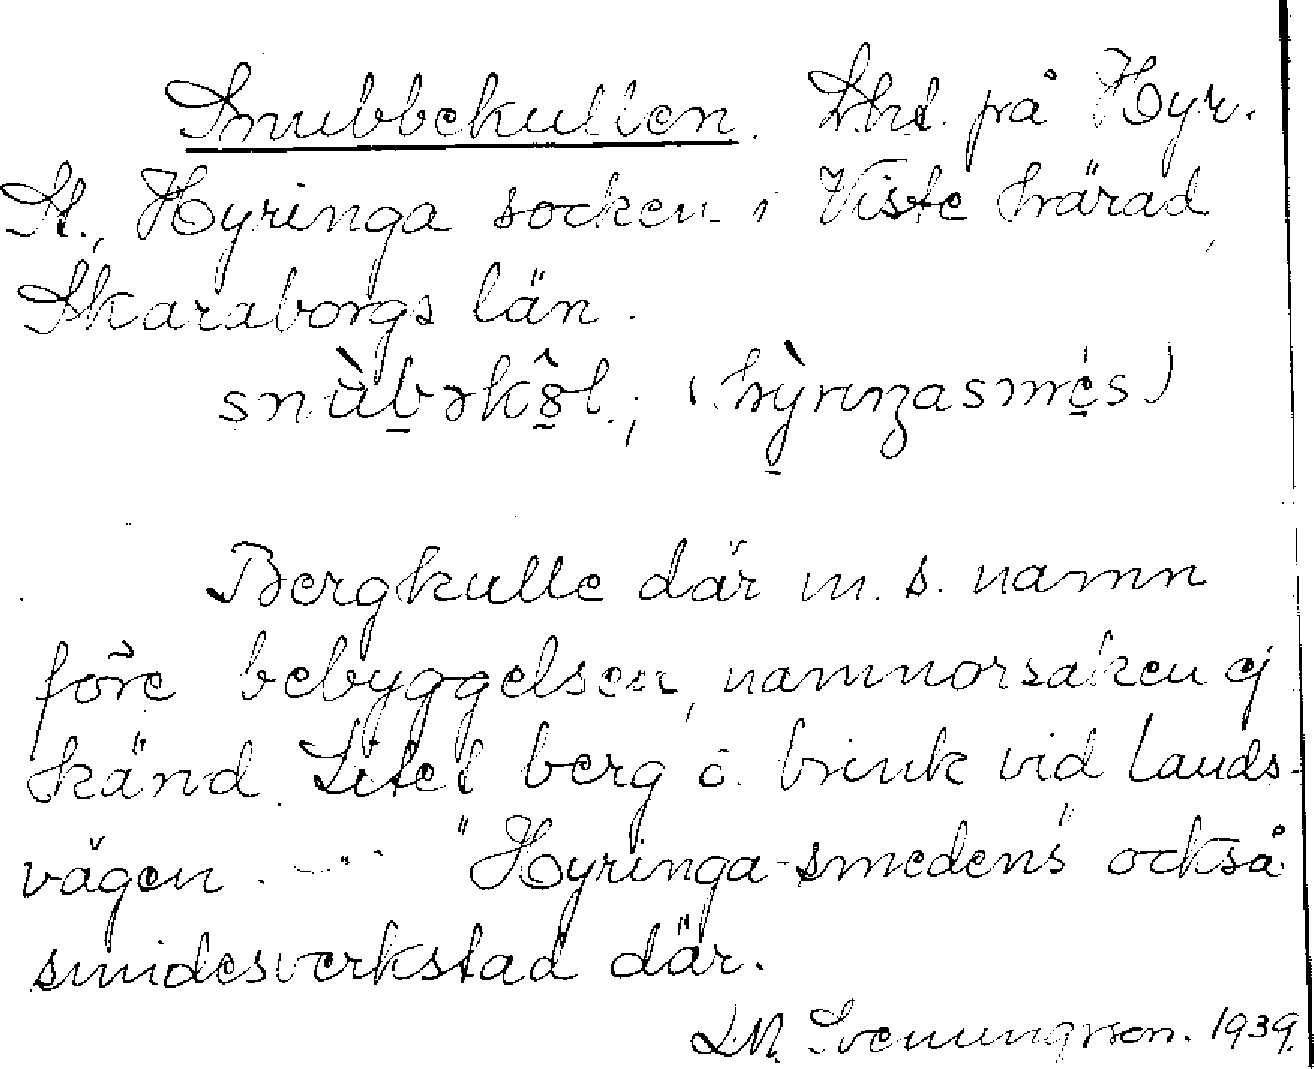 Snubbekullen. Lht. på Hyr.
St., Hyringa socken i Viste härad,
Skaraborgs län.
snùbəkôl.; (hỳriŋasmés)
Bergkulle där m. s. namn
före bebyggelsen, namnorsaken ej
känd. Litet berg o. brink vid lands-
vägen. - "Hyringa-smedens" också
smidesverkstad där.
L.M. Svenungsson. 1939.